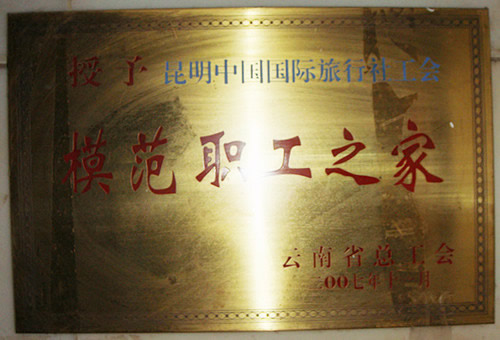 授予 昆明中国国际旅行社工会
模范职工之家
云南省总工会
二00七年十一月